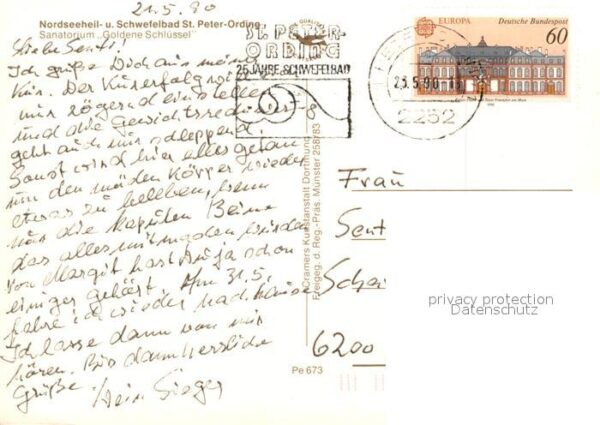 21.5.90
Nordseeheil- u. Schwefelbad St. Peter-Ording
Sanatorium „Goldene Schlüssel“
Liebe Senti!
Ich grüße Dich aus meiner
Kur. Der Kurerfolg will
nur zögernd einstellen
und die Gewichtsreduzierung
geht auch nur schleppend.
Sonst wird hier alles getan
um den müden Körper wieder
etwas zu beleben, wenn
nur die kaputten Beine
das alles mitmachen würden
Von Margit hast Du ja schon
einiges gehört. Am 31.5.
fahre ich wieder nach Hause
Ich lasse dann von mir
hören. Bis dann herzliche
Grüße
ST. PETER-
ORDING
25 JAHRE SCHWEFELBAD
23.5.90
2252
EUROPA Deutsche Bundespost
60
Cramers Kunstanstalt Dortmund
Freigeg. d. Reg.-Präs. Münster 258/83
Pe 673
Frau
Sent
6200
privacy protection
Datenschutz